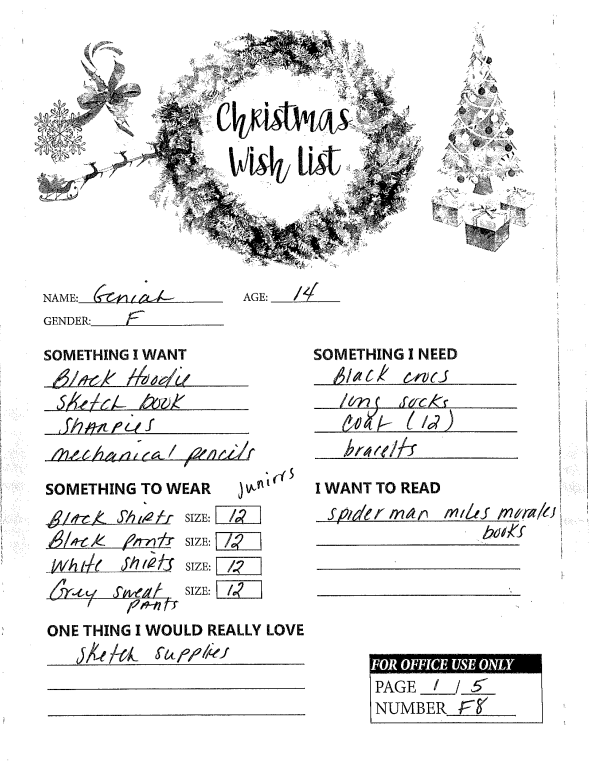 Christmas
Wish List
NAME: Geniah AGE: 14
GENDER: F
SOMETHING I WANT
Black Hoodie
Sketch book
Sharpies
mechanical pencils
SOMETHING I NEED
Black crocs
long socks
coat (12)
bracelts
SOMETHING TO WEAR juniors
Black Shirts SIZE: 12
Black pants SIZE: 12
White shirts SIZE: 12
Grey sweat SIZE: 12
pants
I WANT TO READ
spider man miles murales
books
ONE THING I WOULD REALLY LOVE
Sketch supplies
FOR OFFICE USE ONLY
PAGE 1 / 5
NUMBER F8